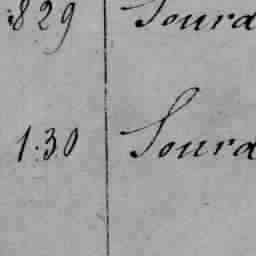 829 Sourd
130 Sourd